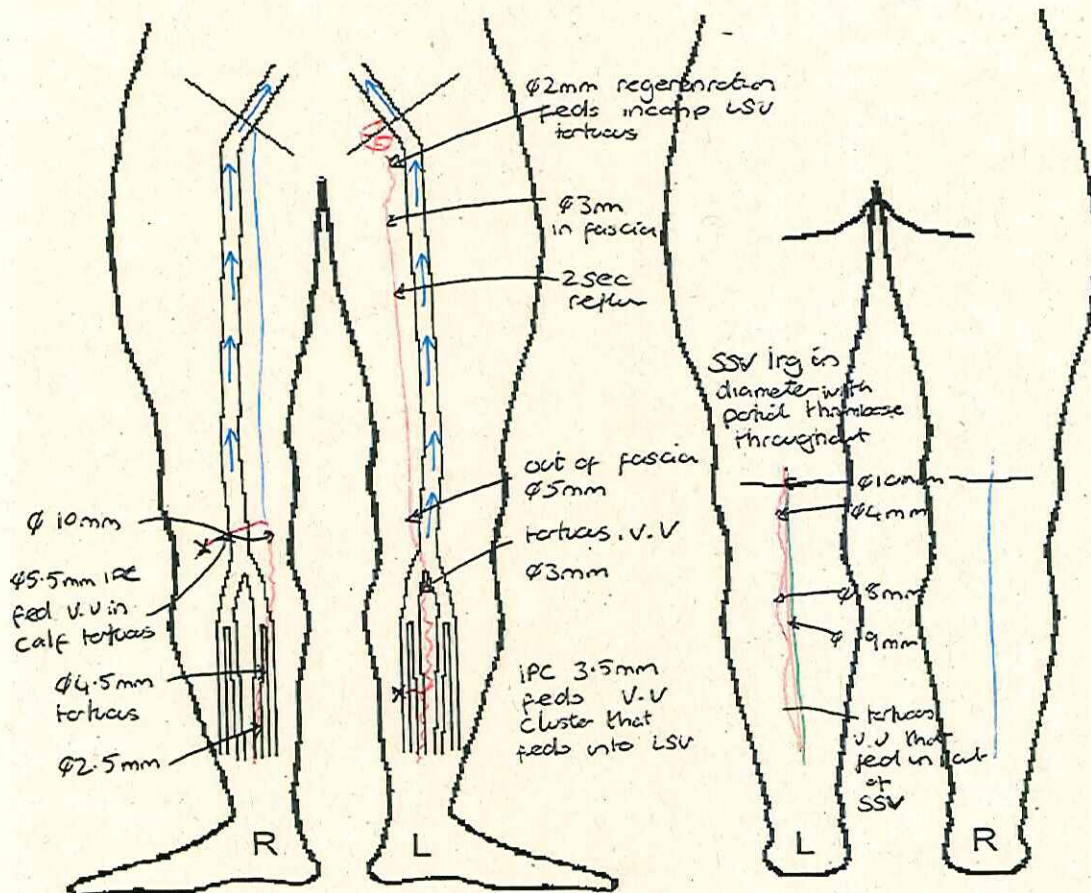 φ2mm regeneration
feeds incomp LSV
tortuous
φ3m
in fascia
2sec
reflux
out of fascia
φ5mm
tortuous V.V
φ3mm
IPC 3.5mm
feeds V.V
cluster that
feeds into LSV
φ 10mm
φ5.5mm IPC
fed V.V in
calf tortuous
φ4.5mm
tortuous
φ2.5mm
R
L
SSV lrg in
diameter with
partial thrombose
throughout
φ10mm
φ4mm
φ 8mm
φ 9mm
tortuous
V.V that
feed in out
of
SSV
L
R